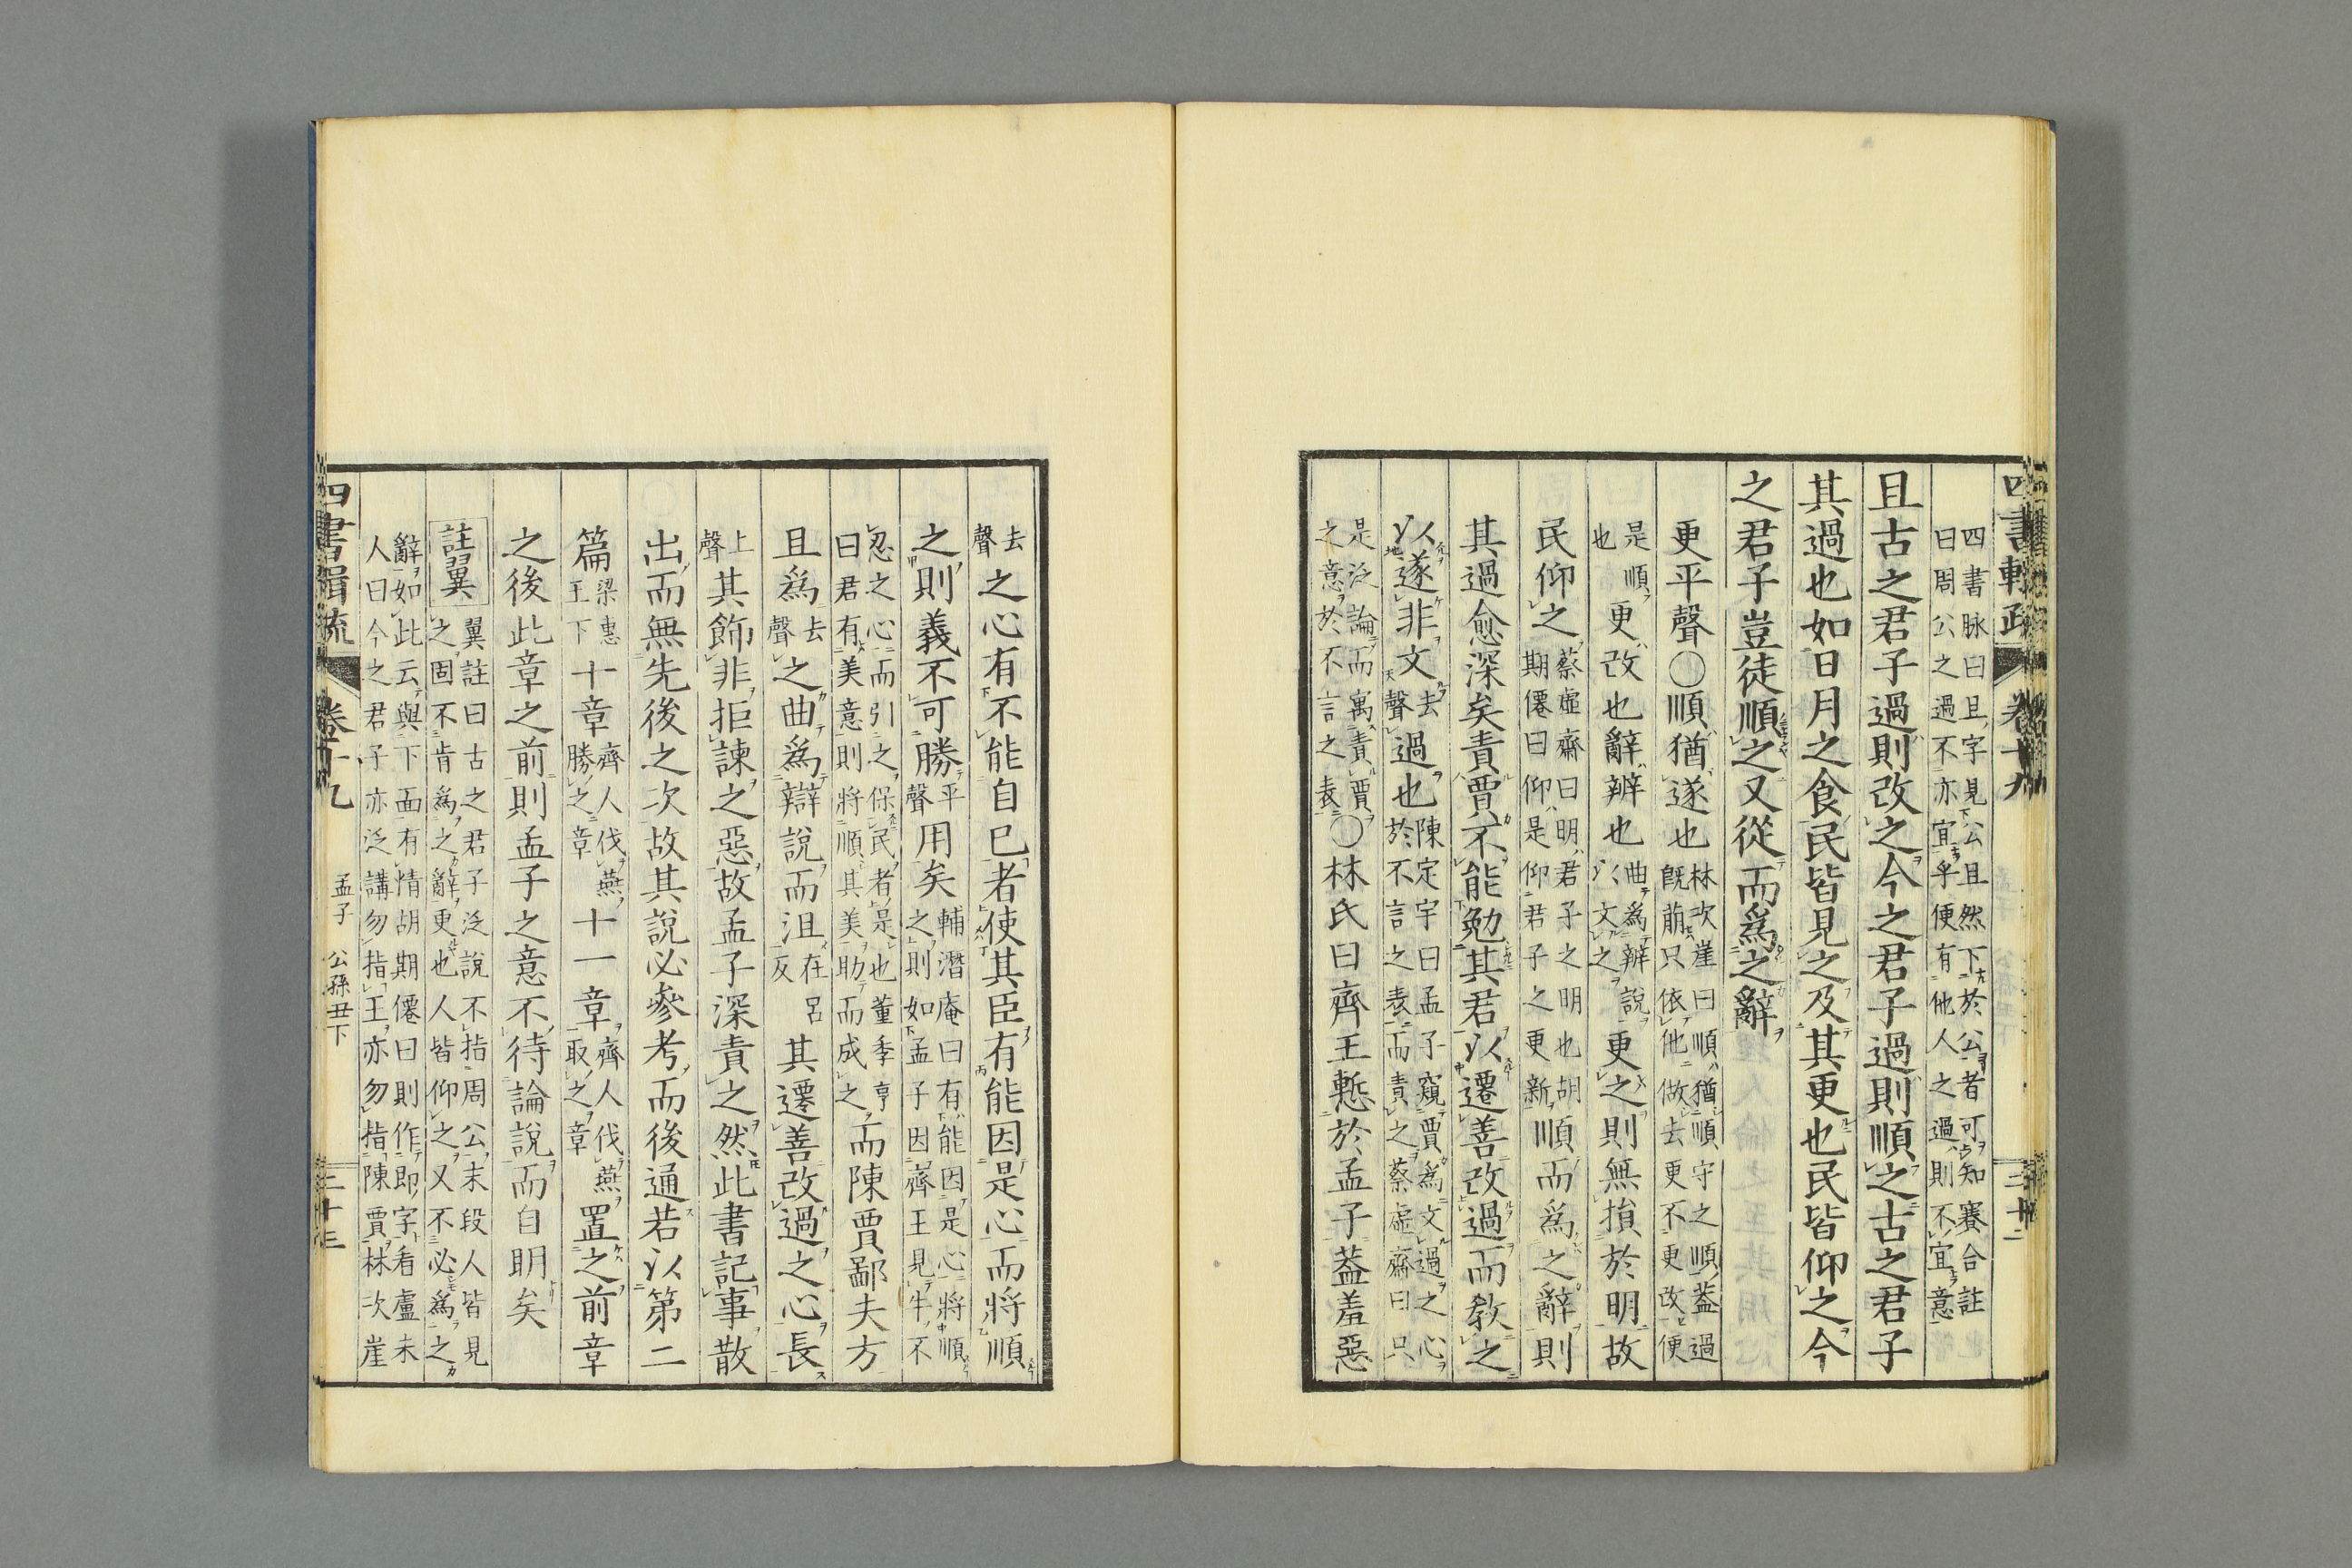 四書脉曰且字見公且然下於公者可知賽合註
曰周公之過不亦宜乎便有他人之過則不宜意
且古之君子過則改之今之君子過則順之古之君子
其過也如日月之食民皆見之及其更也民皆仰之今
之君子豈徒順之又從而爲之辭
更平聲○順猶遂也林次崖曰順猶順守之順蓋過
既前只依他做去更不更改便
是順
也更改也辭辨也曲爲辨說
以文之更之則無損於明故
民仰之蔡虛齋曰明君子之明也胡
期僊曰仰是仰君子之更新順而爲之辭則
其過愈深矣責賈不能勉其君以遷善改過而教之
以遂非文去
聲過也陳定宇曰孟子窺賈爲文過之心
於不言之表而責之蔡虛齋曰只
是泛論而寓責賈
之意於不言之表○林氏曰齊王慙於孟子蓋羞惡
去
聲之心有不能自已者使其臣有能因是心而將順
之則義不可勝平
聲用矣輔潛庵曰有能因是心將順
之則如孟子因齊王見牛不
忍之心而引之保民者是也董季亨
曰君有美意則將順其美助而成之而陳賈鄙夫方
且爲去
聲之曲爲辯說而沮在呂
反其遷善改過之心長
上
聲其飾非拒諫之惡故孟子深責之然此書記事散
出而無先後之次故其說必參考而後通若以第二
篇梁惠
王下十章齊人伐燕
勝之章十一章齊人伐燕
取之章置之前章
之後此章之前則孟子之意不待論說而自明矣
註翼翼註曰古之君子泛說不指周公末段人皆見
之固不肯爲之辭更也人皆仰之又不必爲之
辭如此云與下面有情胡期僊曰則作即字看盧未
人曰今之君子亦泛講勿指王亦勿指陳賈林次崖
四書輯疏
卷十九
孟子
公孫丑下
三十三